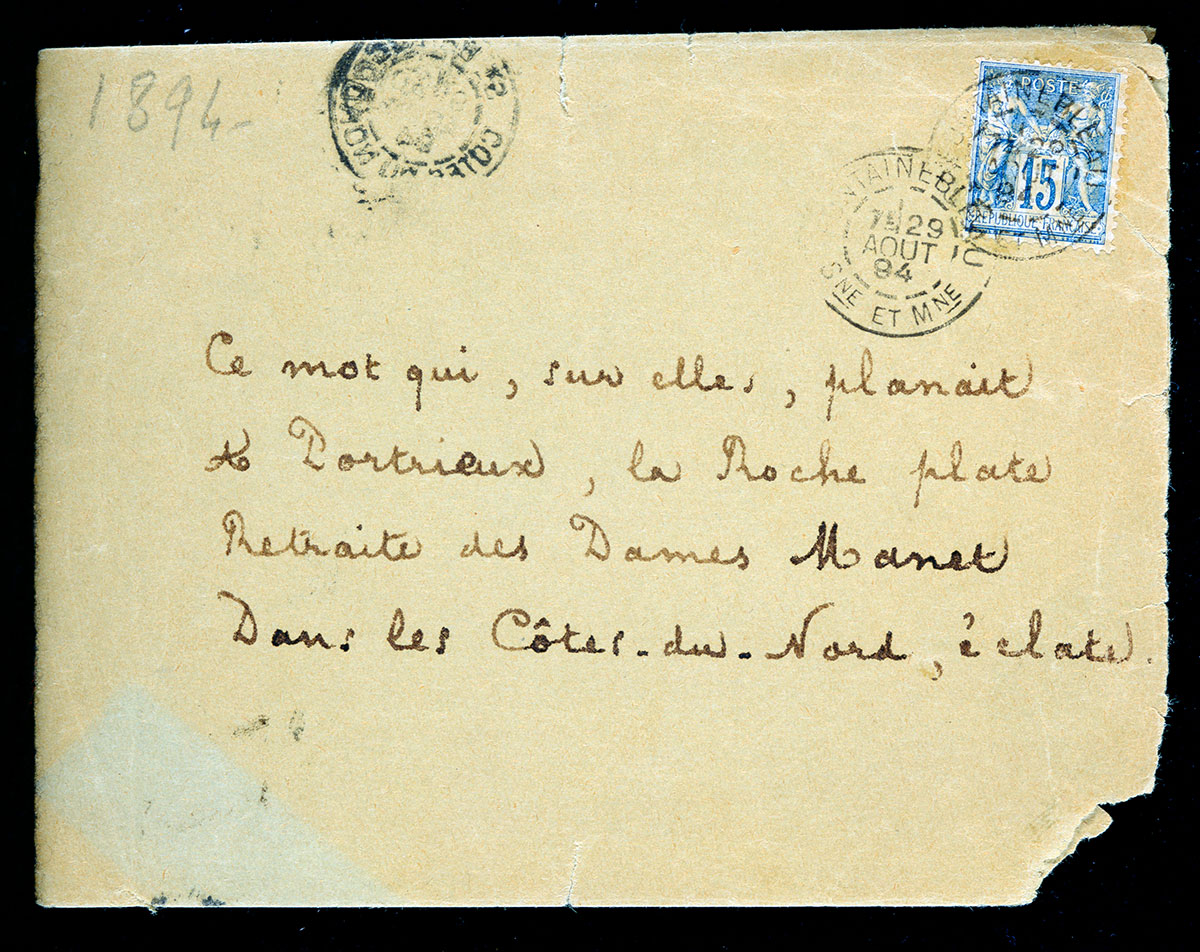 1894-
COTES DU NORD
POSTE
15
RÉPUBLIQUE FRANÇAISE
FONTAINEBLEAU
29
AOUT
94
SNE ET MNE
Ce mot qui, sur elles, planait
À Portrieux, la Roche plate
Retraite des Dames Manet
Dans les Côtes-du-Nord, éclate.